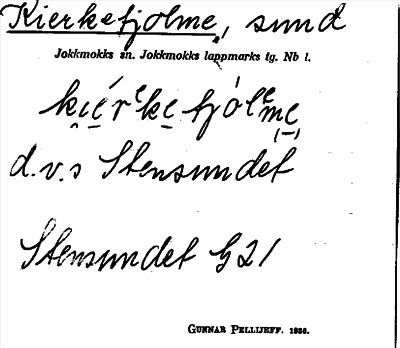 Kierkefjolme, sund
Jokkmokks sn. Jokkmokks lappmarks tg. Nb l.
kiérᵉke fjólᵉme
d.v.s Stensundet
Stensundet G21
GUNNAR PELLIJEFF. 1956.